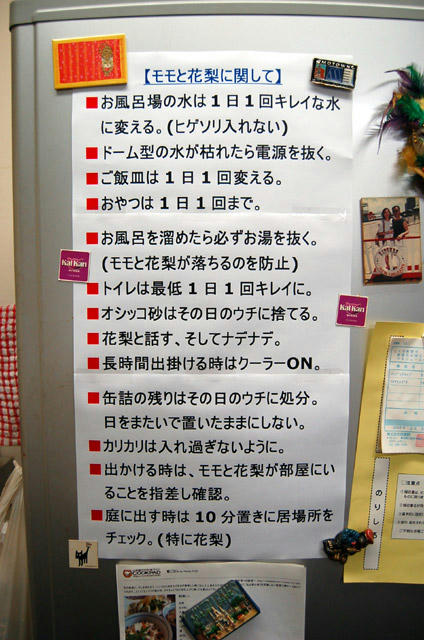 【モモと花梨に関して】
■お風呂場の水は1日1回キレイな水
に変える。(ヒゲソリ入れない)
■ドーム型の水が枯れたら電源を抜く。
■ご飯皿は1日1回変える。
■おやつは1日1回まで。
■お風呂を溜めたら必ずお湯を抜く。
(モモと花梨が落ちるのを防止)
■トイレは最低1日1回キレイに。
■オシッコ砂はその日のウチに捨てる。
■花梨と話す、そしてナデナデ。
■長時間出掛ける時はクーラーON。
■缶詰の残りはその日のウチに処分。
日をまたいで置いたままにしない。
■カリカリは入れ過ぎないように。
■出かける時は、モモと花梨が部屋にい
ることを指差し確認。
■庭に出す時は10分置きに居場所を
チェック。(特に花梨)
MOTOWN
KalKan
KalKan
のりしろ
COOKPAD